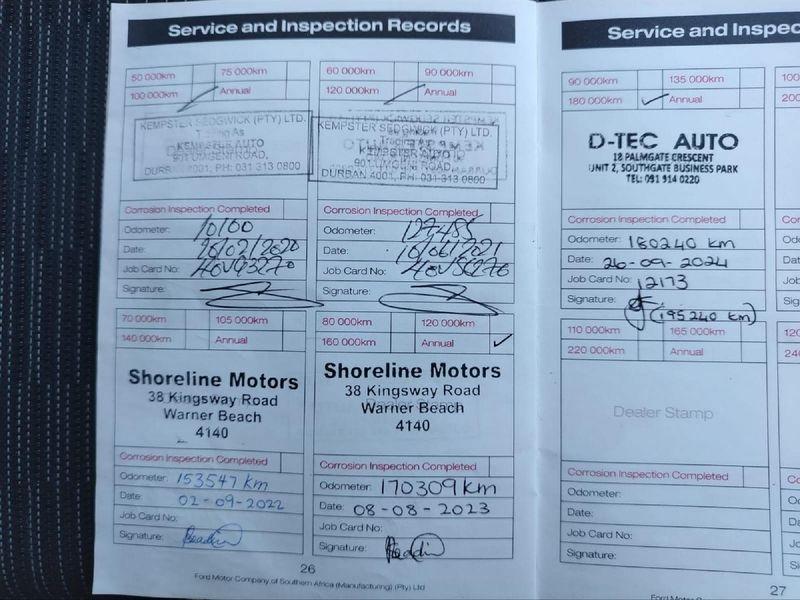 Service and Inspection Records
50 000km 75 000km
100 000km Annual
KEMPSTER SEDGWICK (PTY) LTD.
Trading As
KEMPSTER AUTO
901 UMGENI ROAD,
DURBAN 4001, PH: 031 313 0800
Corrosion Inspection Completed
Odometer:
Date: /02/2020
Job Card No:
Signature:
60 000km 90 000km
120 000km Annual
KEMPSTER SEDGWICK (PTY) LTD.
Trading As
KEMPSTER AUTO
901 UMGENI ROAD,
DURBAN 4001, PH: 031 313 0800
Corrosion Inspection Completed
Odometer: 127485
Date: 10/06/2021
Job Card No:
Signature:
70 000km 105 000km
140 000km Annual
Shoreline Motors
38 Kingsway Road
Warner Beach
4140
Corrosion Inspection Completed
Odometer: 153547 km
Date: 02-09-2022
Job Card No:
Signature:
80 000km 120 000km
160 000km Annual ✓
Shoreline Motors
38 Kingsway Road
Warner Beach
4140
Dealer Stamp
Corrosion Inspection Completed
Odometer: 170309 km
Date: 08-08-2023
Job Card No:
Signature:
26
Ford Motor Company of Southern Africa (Manufacturing) (Pty) Ltd
Service and Inspec
90 000km 135 000km
180 000km ✓ Annual
D-TEC AUTO
18 PALMGATE CRESCENT
UNIT 2, SOUTHGATE BUSINESS PARK
TEL: 031 914 0220
Corrosion Inspection Completed
Odometer: 180240 km
Date: 26-09-2024
Job Card No: 12173
Signature:
(195240 km)
110 000km 165 000km
220 000km Annual
Dealer Stamp
Corrosion Inspection Completed
Odometer:
Date:
Job Card No:
Signature:
27
Ford Motor